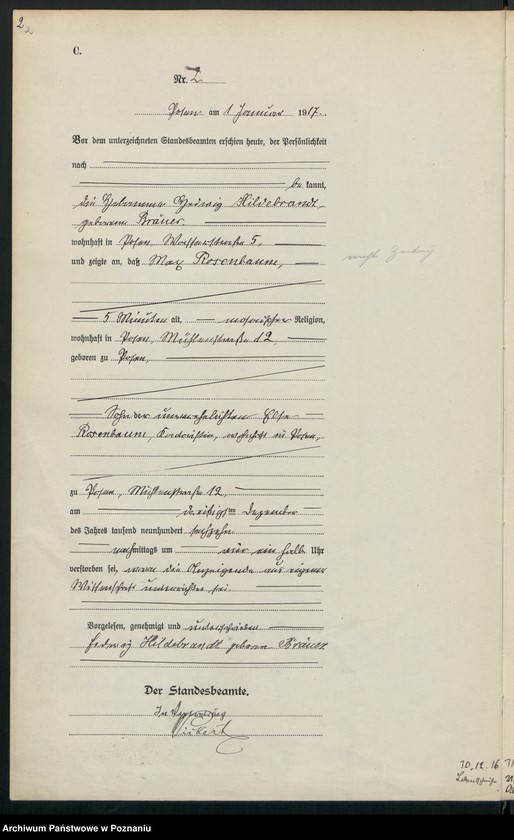 2
2
C.
Nr. 2
Posen am 1 Januar 1917.
Vor dem unterzeichneten Standesbeamten erschien heute, der Persönlichkeit
nach
be kannt,
die Hebamme Hedwig Hildebrandt,
geborene Bräuer.
wohnhaft in Posen, 5,
und zeigte an, daß Max Rosenbaum,
nicht
5 Minuten alt, mosaischer Religion,
wohnhaft in Posen, Mühlenstraße 12,
geboren zu Posen,
Sohn der unverehelichten Else
Rosenbaum, wohnhaft in Posen,
zu Posen, Mühlenstraße 12,
am dreißigsten Dezember
des Jahres tausend neunhundert sechzehn
nachmittags um ein halb Uhr
verstorben sei, wovon die Anzeigende aus eigener
Wissenschaft unterrichtet sei.
Vorgelesen, genehmigt und unterschrieben
Hedwig Hildebrandt geborene Bräuer
Der Standesbeamte.
In Vertretung
30.12.16
Archiwum Państwowe w Poznaniu